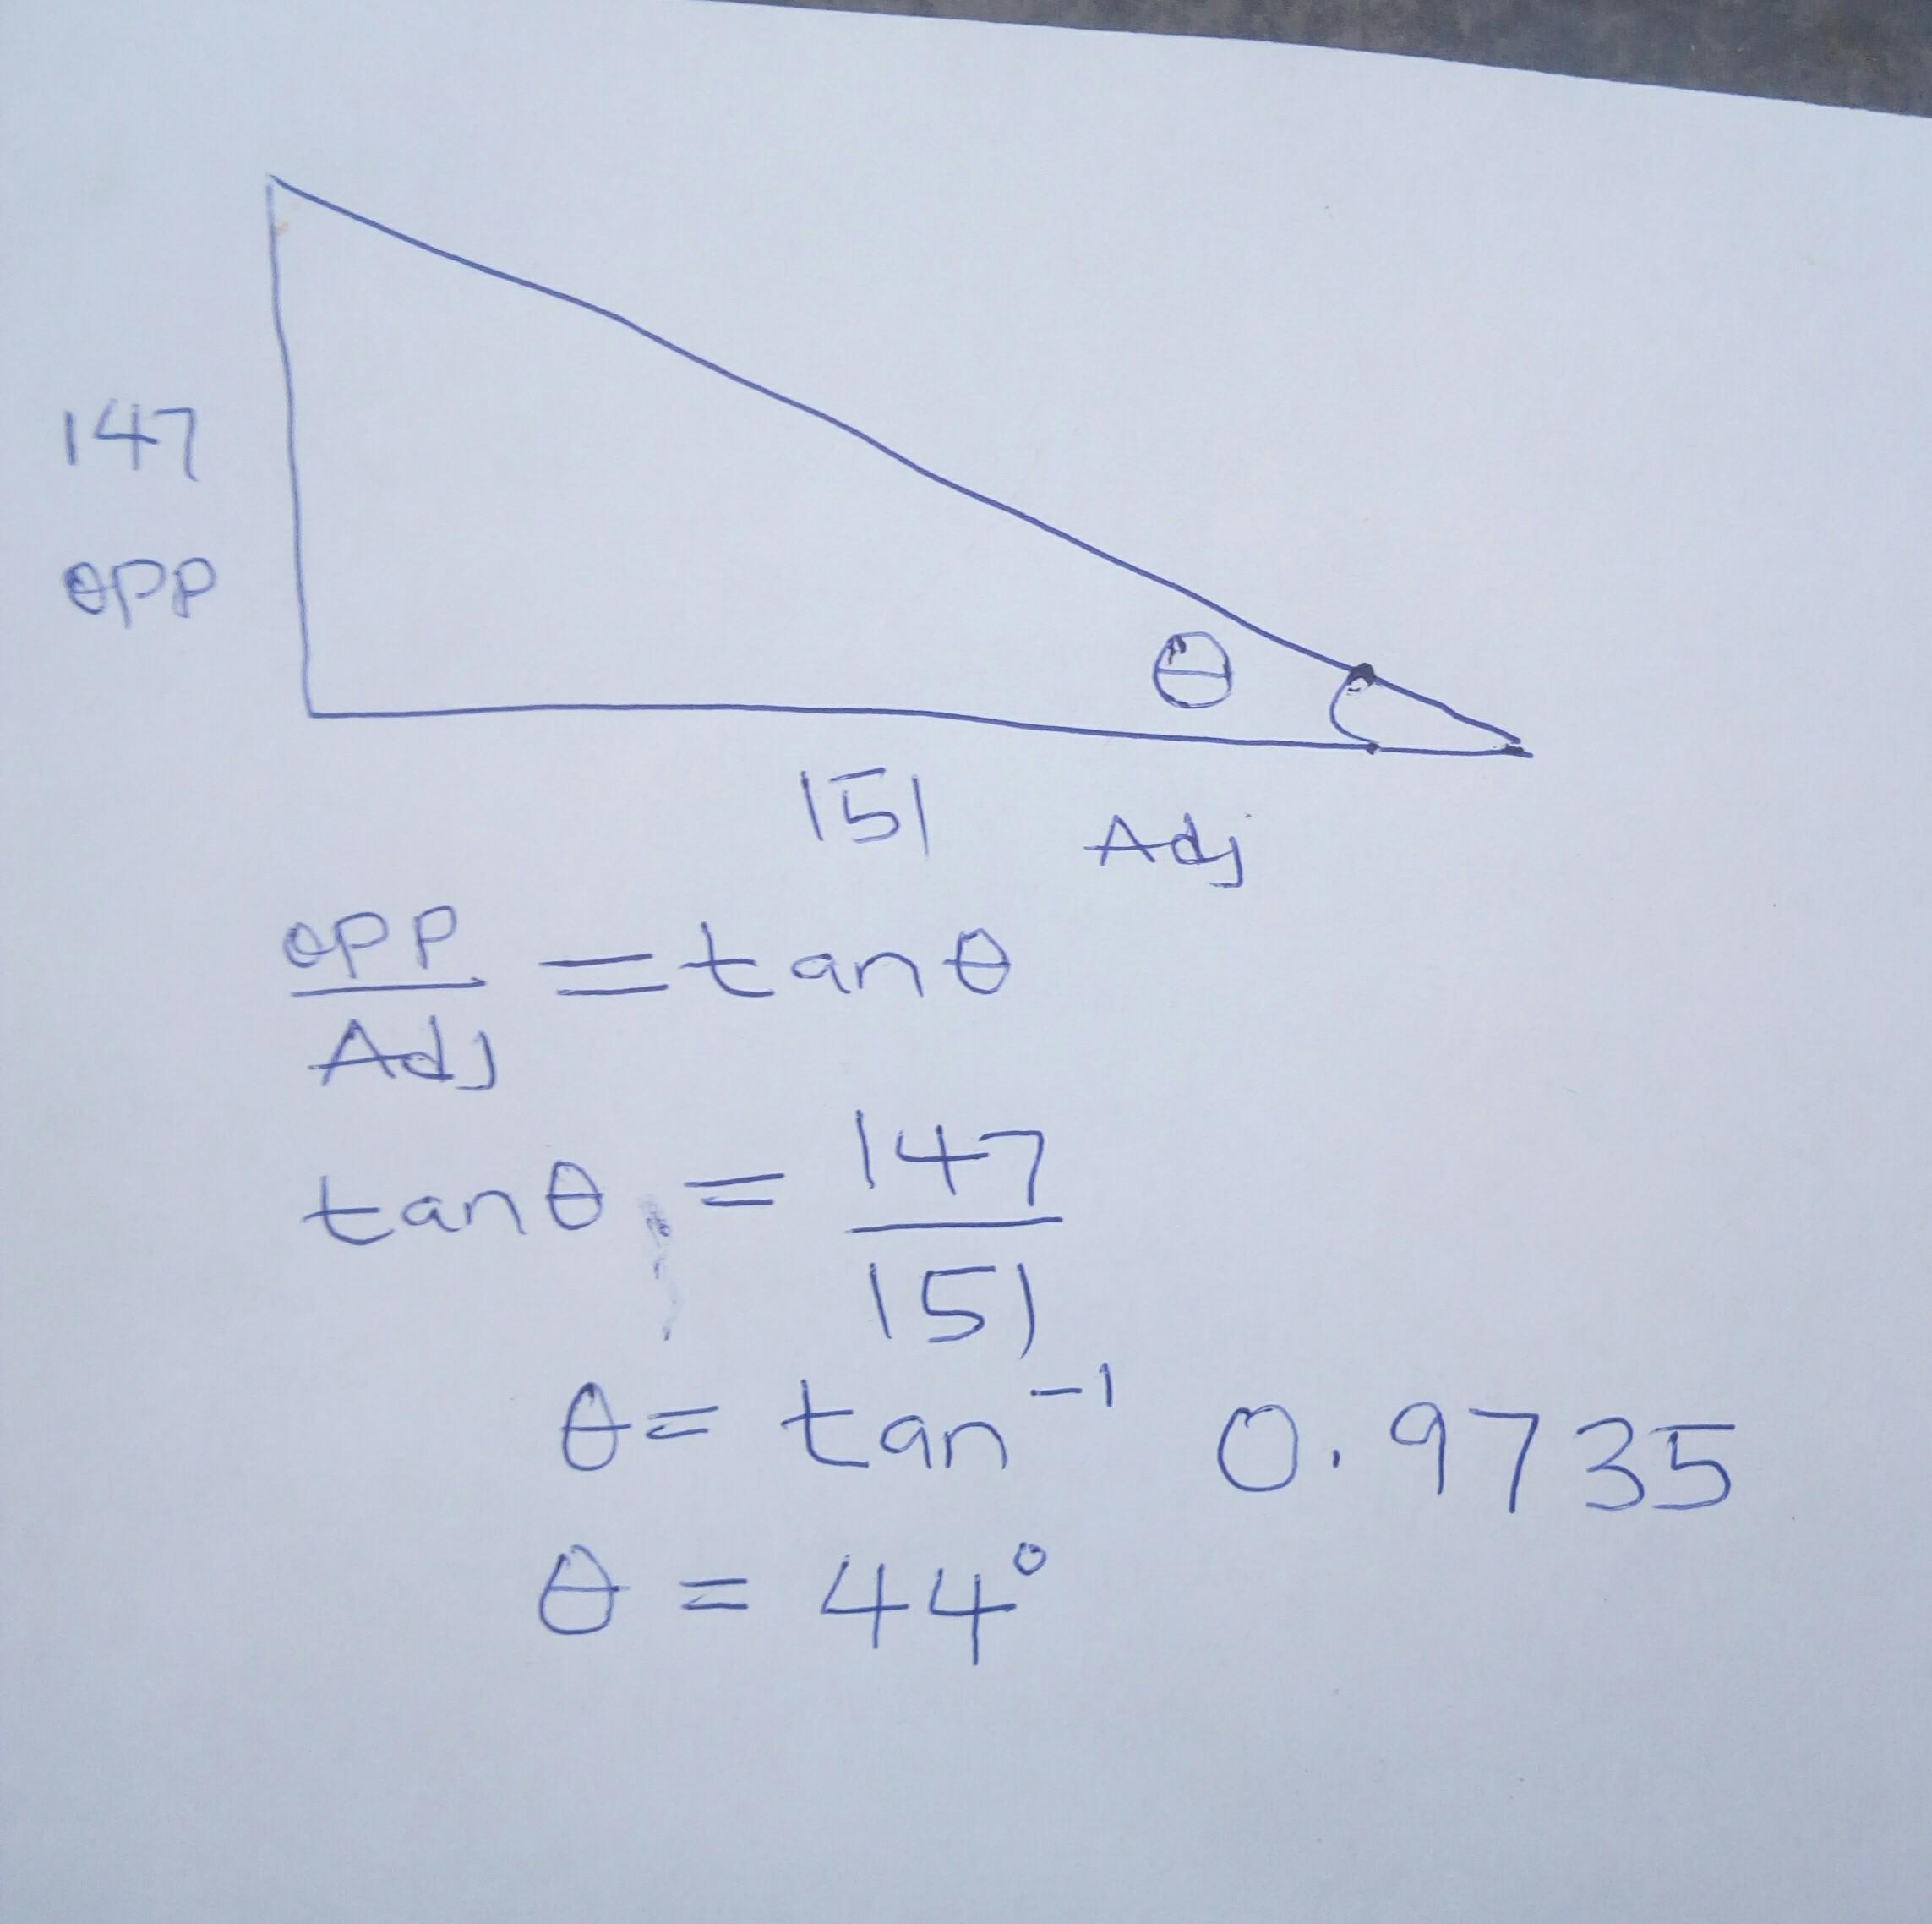 147
opp
θ
151 Adj
opp/Adj = tanθ
tanθ = 147/151
θ = tan⁻¹ 0.9735
θ = 44°